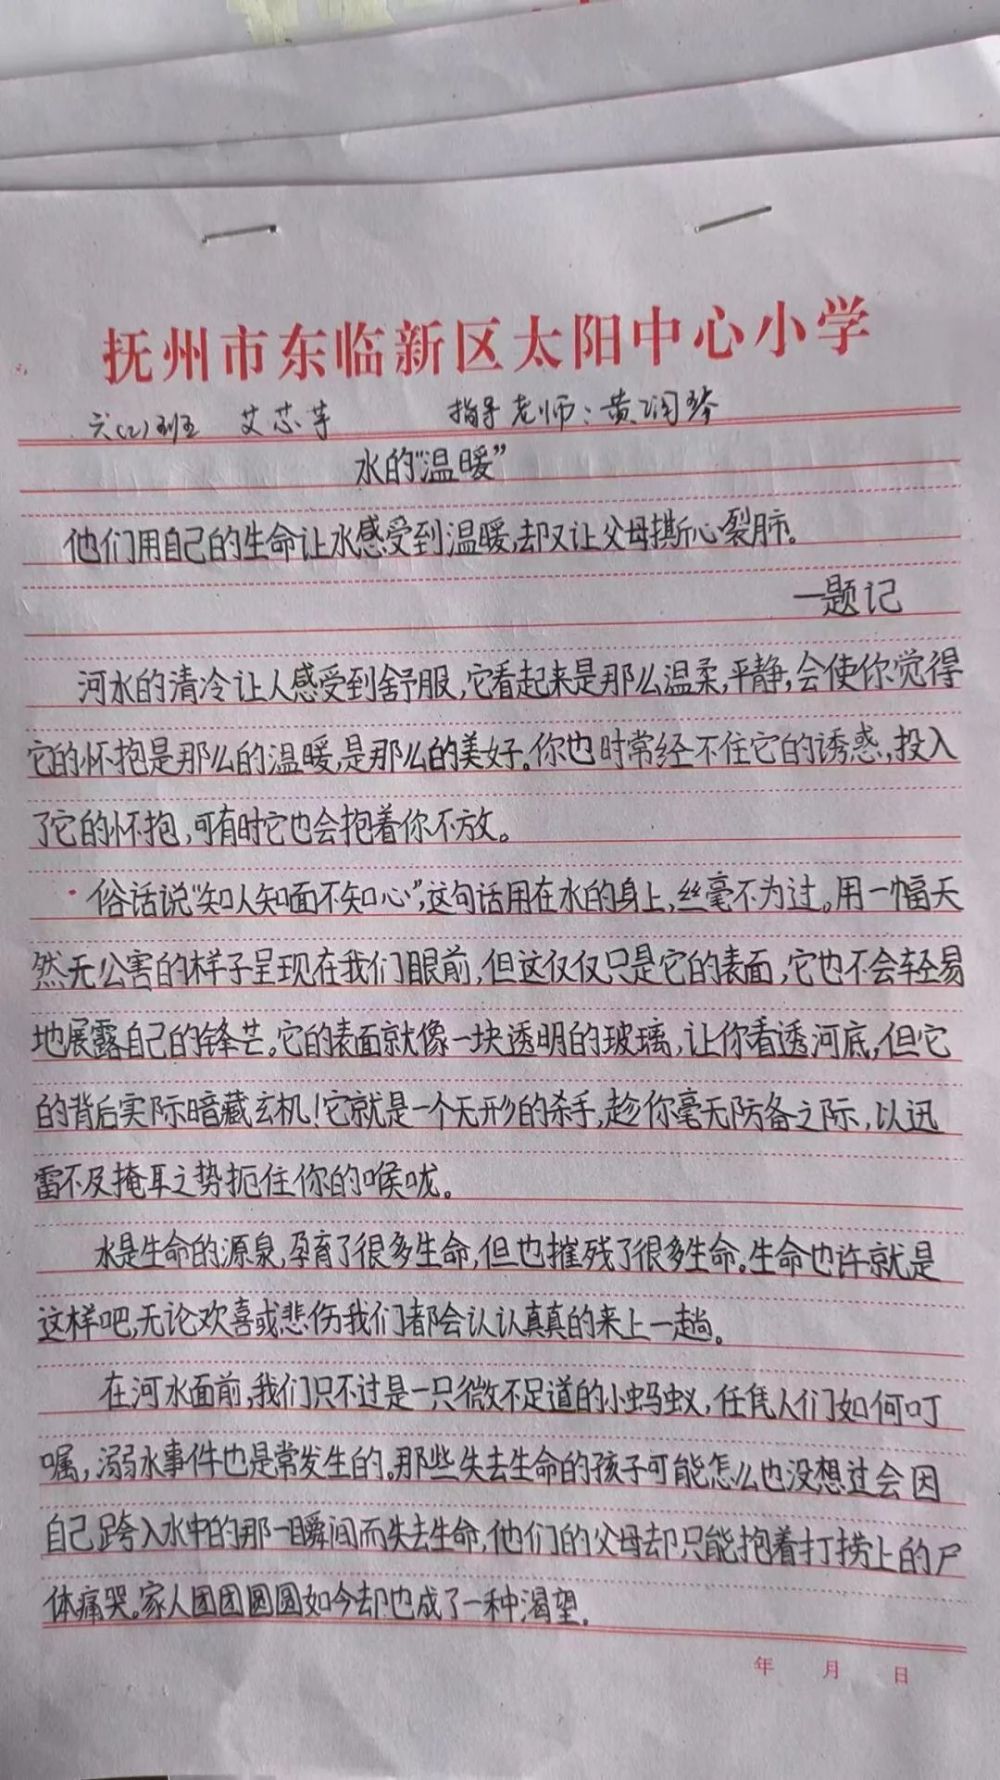 抚州市东临新区太阳中心小学
六(2)班 艾芯芋 指导老师:黄润琴
水的“温暖”
他们用自己的生命让水感受到温暖,却又让父母撕心裂肺。
—题记
河水的清冷让人感受到舒服,它看起来是那么温柔,平静,会使你觉得
它的怀抱是那么的温暖,是那么的美好。你也时常经不住它的诱惑,投入
了它的怀抱,可有时它也会抱着你不放。
俗话说“知人知面不知心”,这句话用在水的身上,丝毫不为过。用一幅天
然无公害的样子呈现在我们眼前,但这仅仅只是它的表面,它也不会轻易
地展露自己的锋芒。它的表面就像一块透明的玻璃,让你看透河底,但它
的背后实际暗藏玄机!它就是一个无形的杀手,趁你毫无防备之际,以迅
雷不及掩耳之势扼住你的喉咙。
水是生命的源泉,孕育了很多生命,但也摧残了很多生命。生命也许就是
这样吧,无论欢喜或悲伤我们都会认认真真的来上一趟。
在河水面前,我们只不过是一只微不足道的小蚂蚁,任凭人们如何叮
嘱,溺水事件也是常发生的。那些失去生命的孩子可能怎么也没想过会因
自己跨入水中的那一瞬间而失去生命,他们的父母却只能抱着打捞上的尸
体痛哭。家人团团圆圆如今却也成了一种渴望.
年 月 日